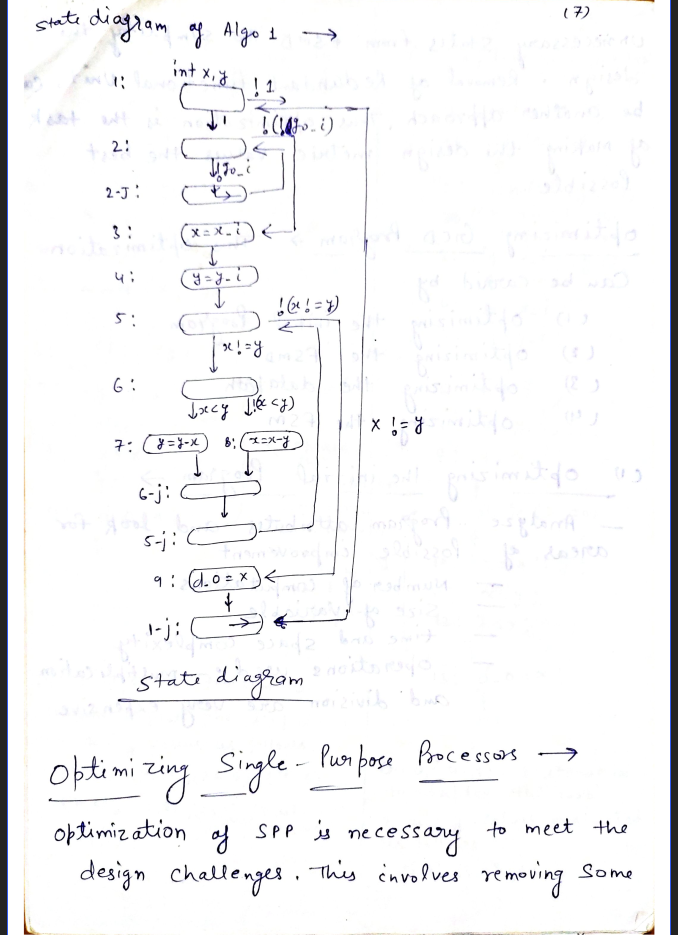 (7)
state diagram of Algo 1 →
int x, y
1:
!1
1
!(!go_i)
2:
!go_i
2-J:
3: x = x_i
4: y = y_i
5:
!(x != y)
x != y
6:
x<y !(x<y)
x != y
7: y=y-x 8: x=x-y
6-j:
5-j:
9: d_o = x
1-j:
state diagram
Optimizing Single-Purpose Processors →
optimization of SPP is necessary to meet the
design challenges. This involves removing some